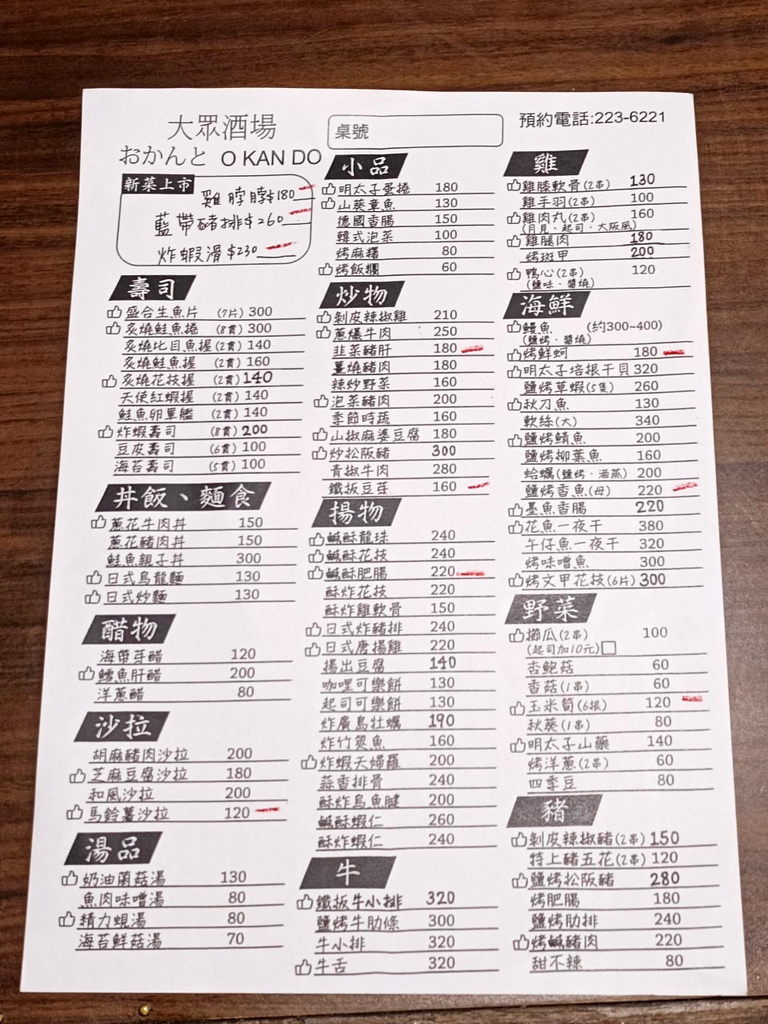 大眾酒場
おかんと O KAN DO
桌號
預約電話:223-6221
新菜上市
雞脖脖$180
藍帶豬排$260
炸蝦滑$230
壽司
盛合生魚片 (7片) 300
炙燒鮭魚捲 (8貫) 300
炙燒比目魚握 (2貫) 140
炙燒鮭魚握 (2貫) 160
炙燒花枝握 (2貫) 140
天使紅蝦握 (2貫) 140
鮭魚卵軍艦 (2貫) 140
炸蝦壽司 (8貫) 200
豆皮壽司 (6貫) 100
海苔壽司 (5貫) 100
丼飯、麵食
蔥花牛肉丼 150
蔥花豬肉丼 150
鮭魚親子丼 300
日式烏龍麵 130
日式炒麵 130
醋物
海帶芽醋 120
鱈魚肝醋 200
洋蔥醋 80
沙拉
胡麻豬肉沙拉 200
芝麻豆腐沙拉 180
和風沙拉 200
馬鈴薯沙拉 120
湯品
奶油菌菇湯 130
魚肉味噌湯 80
精力蜆湯 80
海苔鮮菇湯 70
小品
明太子蛋捲 180
山葵章魚 130
德國香腸 150
韓式泡菜 100
烤麻糬 80
烤飯糰 60
炒物
剝皮辣椒雞 210
蔥爆牛肉 250
韭菜豬肝 180
薑燒豬肉 180
辣炒野菜 160
泡菜豬肉 200
季節時蔬 160
山椒麻婆豆腐 180
炒松阪豬 300
青椒牛肉 280
鐵板豆芽 160
揚物
鹹酥龍珠 240
鹹酥花枝 240
鹹酥肥腸 220
酥炸花枝 220
酥炸雞軟骨 150
日式炸豬排 240
日式唐揚雞 220
揚出豆腐 140
咖哩可樂餅 130
起司可樂餅 130
炸廣島牡蠣 190
炸竹筴魚 160
炸蝦天婦羅 200
蒜香排骨 240
酥炸烏魚腱 200
鹹酥蝦仁 260
酥炸蝦仁 240
牛
鐵板牛小排 320
鹽烤牛肋條 300
牛小排 320
牛舌 320
雞
雞膝軟骨(2串) 130
雞手羽(2串) 100
雞肉丸(2串) 160
(月見、起司、大阪風)
雞腿肉 180
烤斑甲 200
鴨心(2串) 120
(鹽味、醬燒)
海鮮
鰻魚 (約300~400)
(鹽烤、醬燒)
烤鮮蚵 180
明太子培根干貝 320
鹽烤草蝦(5隻) 260
秋刀魚 130
軟絲(大) 340
鹽烤鯖魚 200
鹽烤柳葉魚 160
蛤蠣(鹽烤、酒蒸) 200
鹽烤香魚(母) 220
墨魚香腸 220
花魚一夜干 380
午仔魚一夜干 320
烤味噌魚 300
烤文甲花枝(6片) 300
野菜
櫛瓜(2串) 100
(起司加10元)
杏鮑菇 60
香菇(1串) 60
玉米筍(6根) 120
秋葵(1串) 80
明太子山藥 140
烤洋蔥(2串) 60
四季豆 80
豬
剝皮辣椒豬(2串) 150
特上豬五花(2串) 120
鹽烤松阪豬 280
烤肥腸 180
鹽烤肋排 240
烤鹹豬肉 220
甜不辣 80